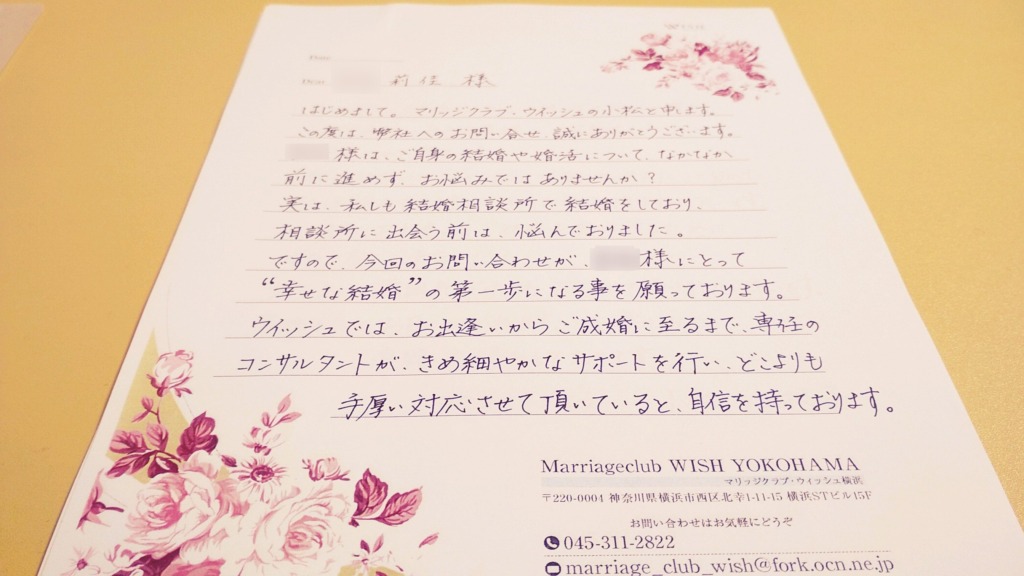 WISH
Date
Dear 莉佳 様
はじめまして。マリッジクラブ・ウイッシュの小松と申します。
この度は、弊社へのお問い合せ、誠にありがとうございます。
様は、ご自身の結婚や婚活について、なかなか
前に進めず、お悩みではありませんか？
実は、私しも結婚相談所で結婚をしており、
相談所に出会う前は、悩んでおりました。
ですので、今回のお問い合わせが、 様にとって
“幸せな結婚”の第一歩になる事を願っております。
ウイッシュでは、お出逢いからご成婚に至るまで、専任の
コンサルタントが、きめ細やかなサポートを行い、どこよりも
手厚い対応させて頂いていると、自信を持っております。
Marriageclub WISH YOKOHAMA
マリッジクラブ・ウィッシュ横浜
〒220-0004 神奈川県横浜市西区北幸1-11-15 横浜STビル15F
お問い合わせはお気軽にどうぞ
045-311-2822
marriage_club_wish@fork.ocn.ne.jp